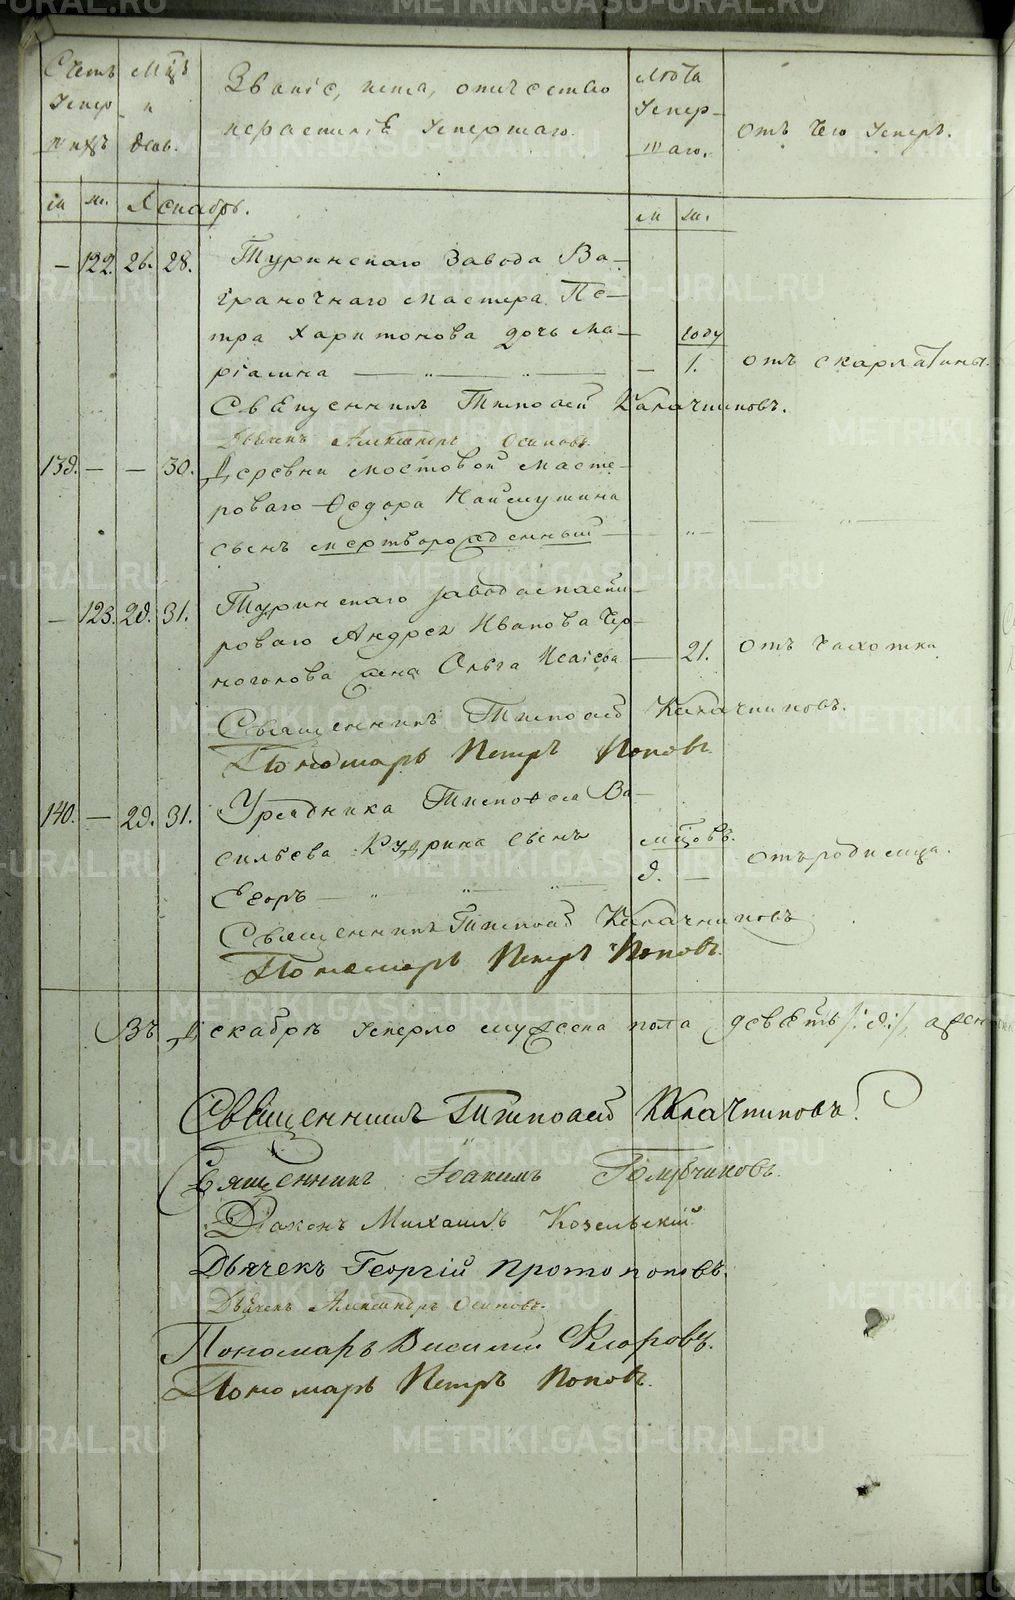 Счетъ умершихъ
Мѣсяцъ и день
Званіе, имя, отчество
и фамилія умершаго.
Лѣта умершаго.
Отъ чего умеръ.
м. ж. Декабрь. м ж.
— 122. 26. 28. Туринскаго завода Ва-
граночнаго мастера Пе-
тра Харитонова дочь Ма-
году
ріамна — 1. отъ скарлатины.
Священникъ Тимофей Калачниковъ.
Дьячекъ Александръ Осиповъ.
139. — — 30. Деревни Мостовой масте-
роваго Федора Наймушина
сынъ мертворожденный
— 123. 29. 31. Туринскаго завода масте-
роваго Андрея Иванова Чер-
ноголова жена Ольга Исаіева — 21. отъ чахотки
Священникъ Тимофей Калачниковъ.
Пономарь Петръ Поповъ
140. — 29. 31. Урядника Тимофея Ва-
сильева Кудрина сынъ мѣсяцовъ.
Егоръ 9. — отъ родимца.
Священникъ Тимофей Калачниковъ
Пономарь Петръ Поповъ.
Въ Декабрѣ умерло мужеска пола девять /:9:/, а жен
Священникъ Тимофей Калачниковъ.
Священникъ Іоакимъ Голубчиковъ.
Діаконъ Михаилъ Козельскій
Дьячекъ Георгій Протопоповъ.
Дьячекъ Александръ Осиповъ.
Пономарь Василій Флоровъ.
Пономарь Петръ Поповъ.
METRIKI.GASO-URAL.RU